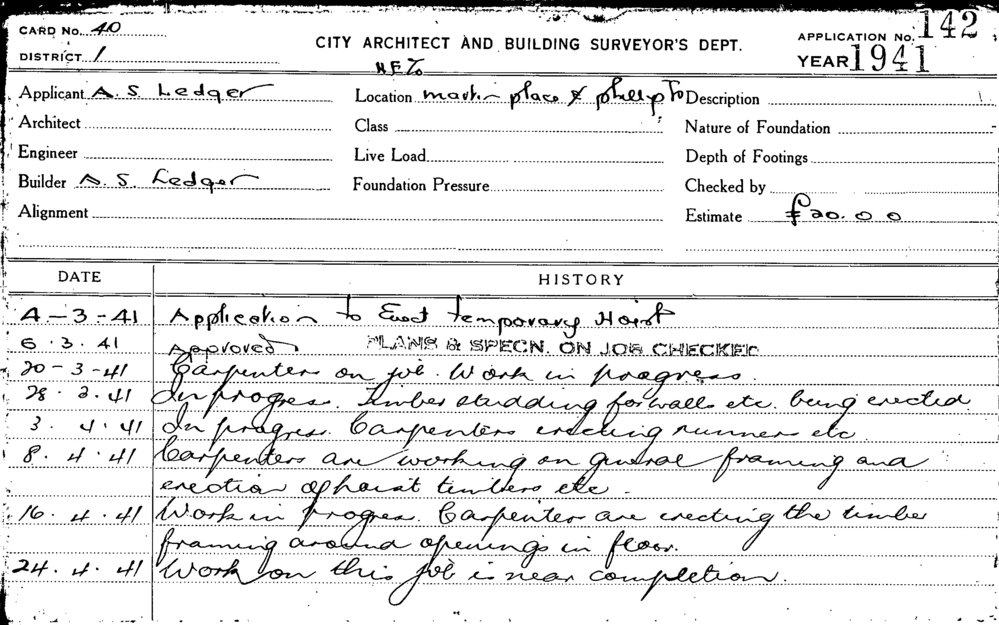 CARD No. 40
DISTRICT 1
CITY ARCHITECT AND BUILDING SURVEYOR'S DEPT.
APPLICATION No. 142
YEAR 1941
Applicant A. S. Ledger
Location Martin place & phillip
Description
Architect
Class
Nature of Foundation
Engineer
Live Load
Depth of Footings
Builder A. S. Ledger
Foundation Pressure
Checked by
Alignment
Estimate £20.0.0
DATE HISTORY
4-3-41 Application to Erect temporary Hoist
6.3.41 Approved PLANS & SPECN. ON JOB CHECKED
20-3-41 Carpenters on job. Work in progress.
28.3.41 In progress. Timber studding for walls etc. being erected
3.4.41 In progress. Carpenters erecting runners etc
8.4.41 Carpenters are working on general framing and
erection of hoist timbers etc.
16.4.41 Work in progress. Carpenters are erecting the timber
framing around openings in floor.
24.4.41 Work on this job is near completion.